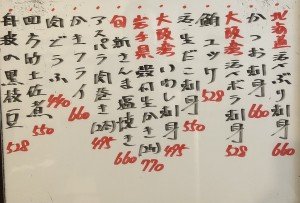 北海道 活〆ぶり刺身 660
かつお刺身 660
大阪産 活〆ボラ刺身 528
鮪ユッケ 528
活生だこ刺身 550
大阪産 いわし刺身 495
岩手県 殻付生かき(2ヶ) 770
旬 新さんま塩焼き 660
アスパラ肉巻き(2本) 495
かきフライ 660
肉どうふ 440
四方竹土佐煮 550
自家の黒枝豆 528